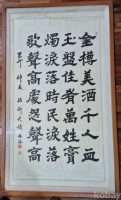 金樽美酒千人血
玉盤佳肴萬姓膏
燭淚落時民淚落
歌聲高處怨聲高